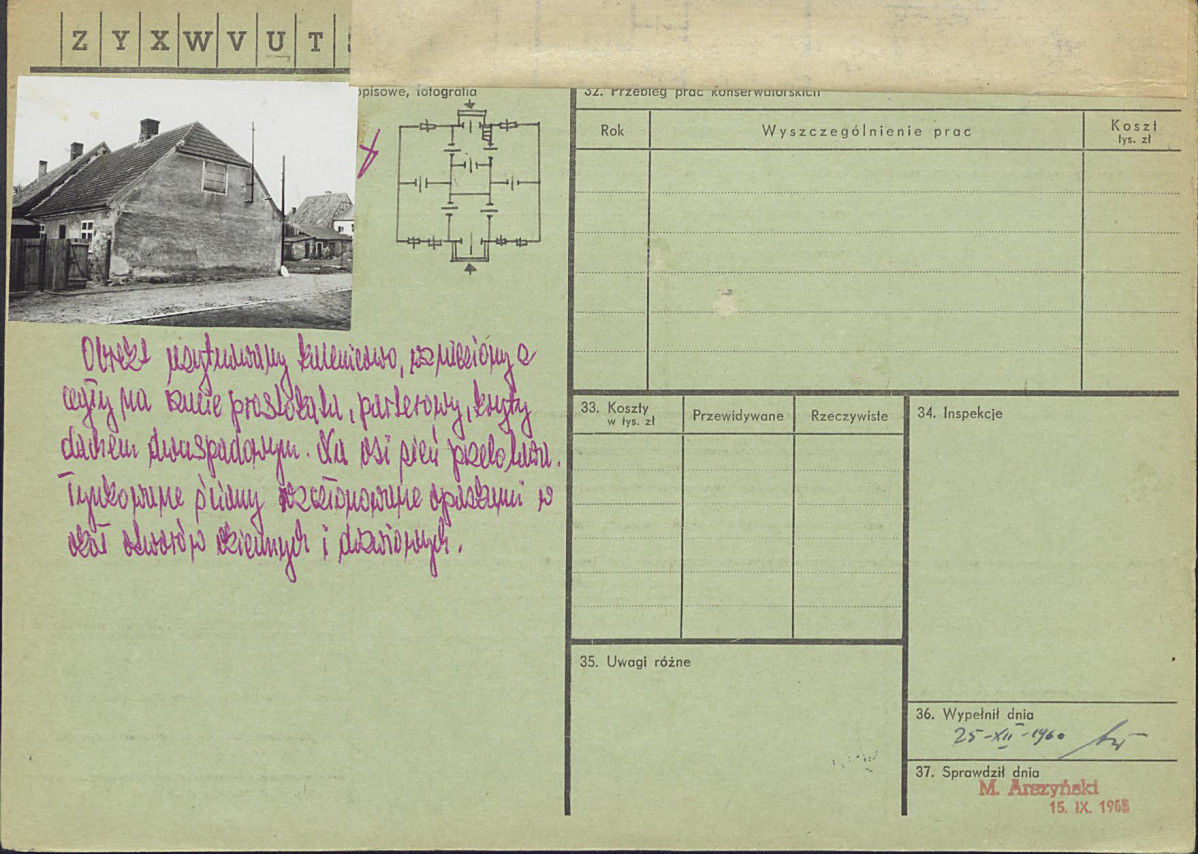 Z Y X W V U T
opisowe, fotografia
32. Przebieg prac konserwatorskich
Rok
Wyszczególnienie prac
Koszt
tys. zł
Obiekt usytuowany kalenicowo, wzniesiony z
cegły na rzucie prostokąta, parterowy, kryty
dachem dwuspadowym. Na osi sień przelotowa.
Tynkowane ściany opaskami w
okół otworów okiennych i drzwiowych.
33. Koszty
w tys. zł
Przewidywane
Rzeczywiste
34. Inspekcje
35. Uwagi różne
36. Wypełnił dnia
25-XII-1960
37. Sprawdził dnia
M. Arszyński
15. IX. 1965